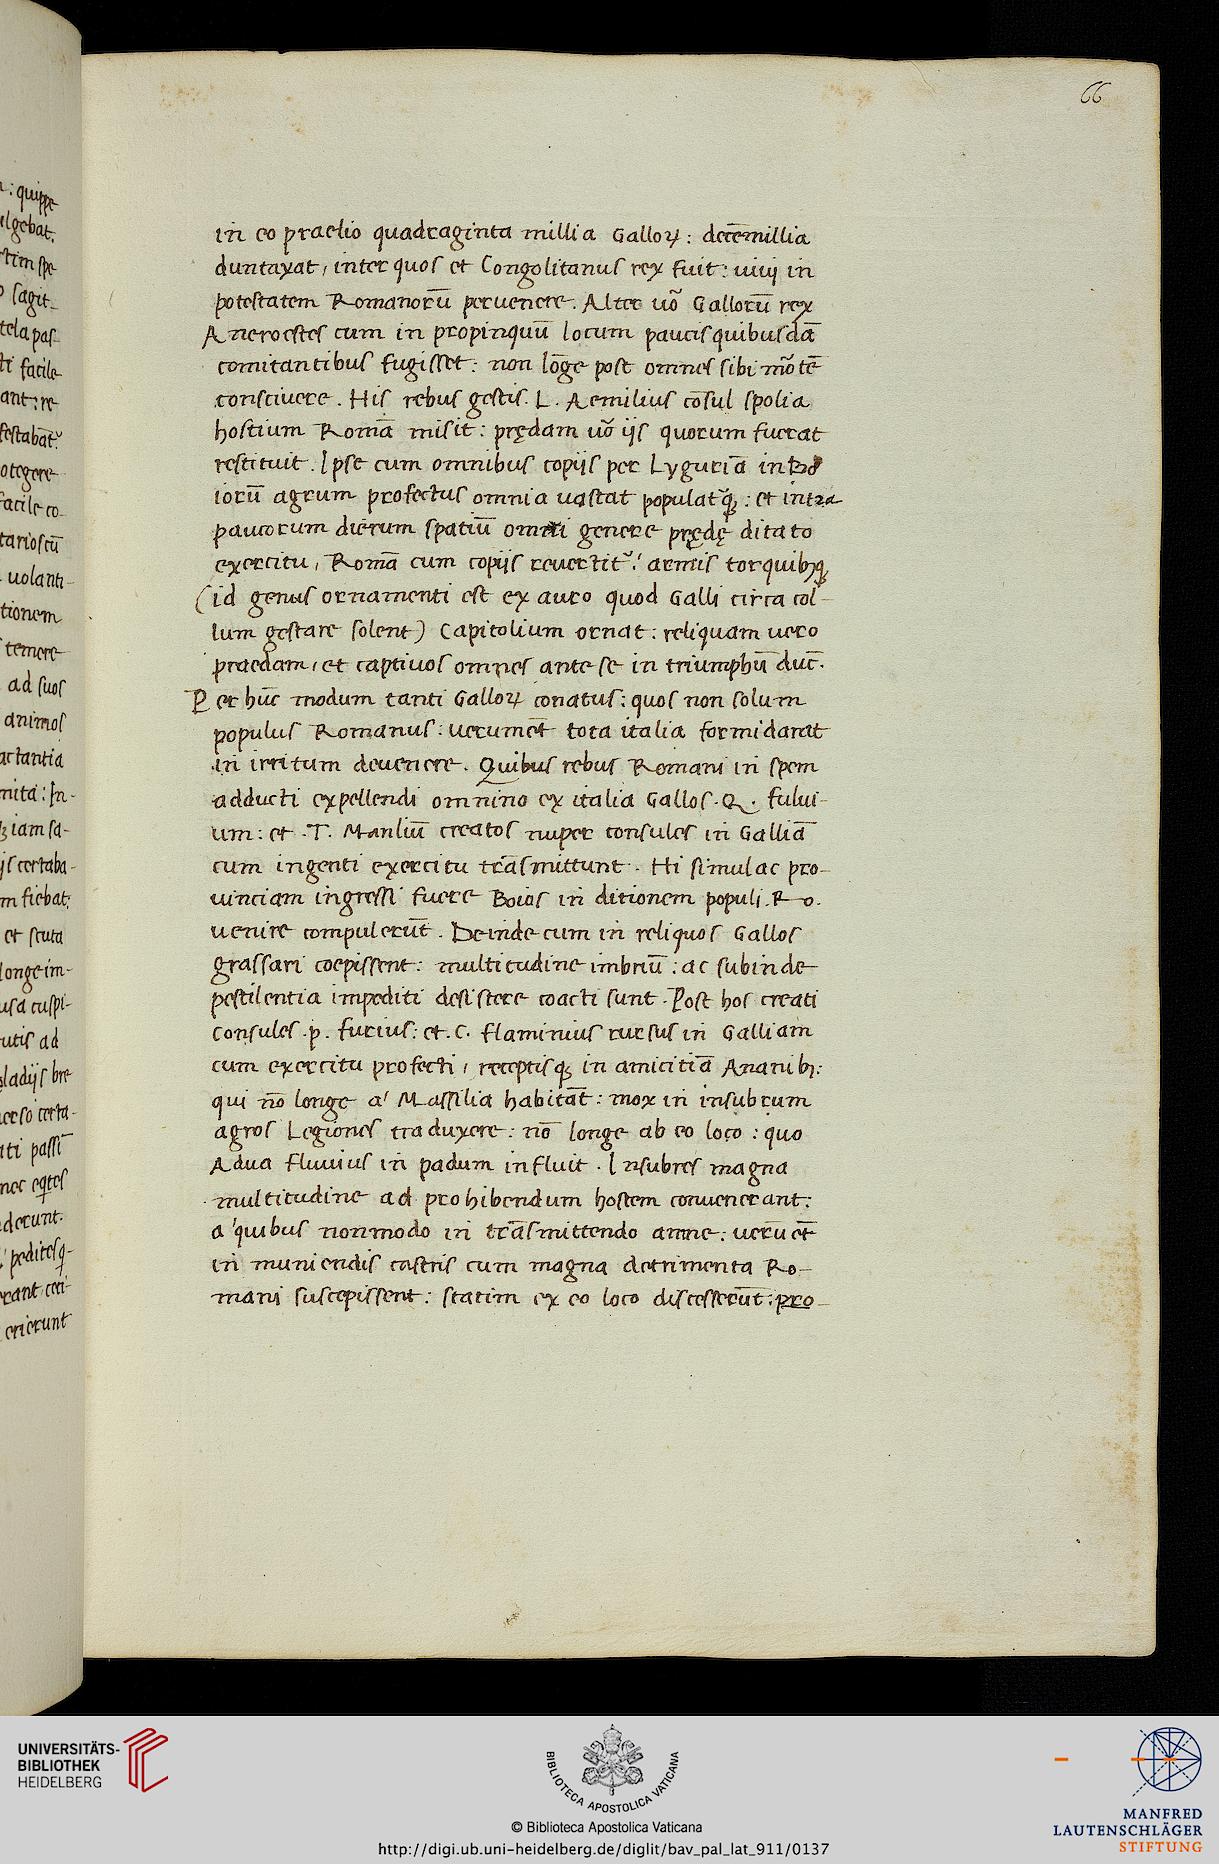 66
in eo praelio quadraginta millia Galloꝝ: decē millia
duntaxat, inter quos et Congolitanus rex fuit: uiui in
potestatem Romanorū peruenere. Alter uō Gallorū rex
Aneroestes cum in propinquū locum paucis quibusdā
comitantibus fugisset: non lōge post omnes sibi mōtē
consciuere. His rebus gestis. L. Aemilius cōsul spolia
hostium Romā misit: prędam uō ijs quorum fuerat
restituit. Ipse cum omnibus copijs per Lyguriā in Bo
iorū agrum profectus omnia uastat populat᷒qꝫ: et intra
paucorum dierum spatiū omni genere prędę ditato
exercitu, Romā cum copijs reuertit᷒: armis torquibꝫqꝫ
(id genus ornamenti est ex auro quod Galli circa col-
lum gestare solent) Capitolium ornat: reliquam uero
praedam, et captiuos omnes ante se in triumphū duc̄.
Per hūc modum tanti Galloꝝ conatus: quos non solum
populus Romanus: uerumēt tota italia formidarat
in irritum deuenere. Quibus rebus Romani in spem
adducti expellendi omnino ex italia Gallos. Q. fului-
um: et .T. Manliū creatos nuper consules in Galliā
cum ingenti exercitu trāsmittunt. Hi simul ac pro-
uinciam ingressi fuere Boios in ditionem populi. Ro.
uenire compulerūt. Deinde cum in reliquos Gallos
grassari coepissent: multitudine imbriū: ac subinde
pestilentia impediti desistere coacti sunt. Post hos creati
consules .p. furius: et. C. flaminius rursus in Galliam
cum exercitu profecti, receptisqꝫ in amicitiā Ananibꝫ:
qui nō longe a' Massilia habitāt: mox in insubrum
agros Legiones traduxere: nō longe ab eo loco: quo
Adua fluuius in padum influit. Insubres magna
multitudine ad prohibendum hostem conuenerant:
a' quibus non modo in trāsmittendo amne: uerūēt
in muniendis castris cum magna detrimenta Ro-
mani suscepissent: statim ex eo loco discesserūt: pro-
UNIVERSITÄTS-
BIBLIOTHEK
HEIDELBERG
BIBLIOTECA APOSTOLICA VATICANA
© Biblioteca Apostolica Vaticana
http://digi.ub.uni-heidelberg.de/diglit/bav_pal_lat_911/0137
MANFRED
LAUTENSCHLÄGER
STIFTUNG